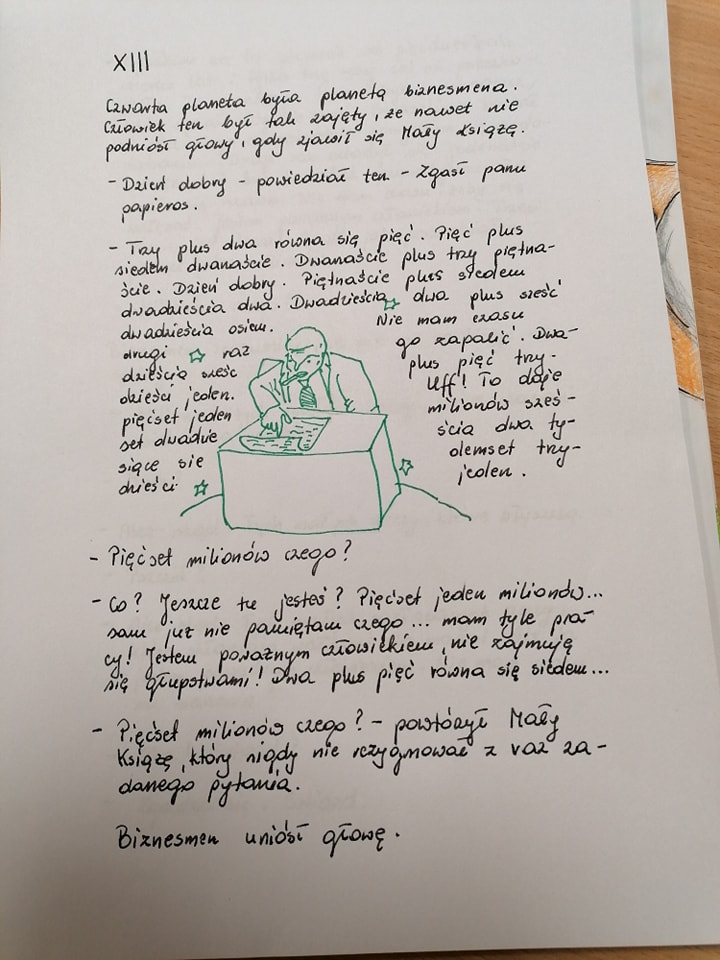 XIII
Czwarta planeta była planetą biznesmena.
Człowiek ten był tak zajęty, że nawet nie
podniósł głowy, gdy zjawił się Mały Książę.
- Dzień dobry - powiedział ten - Zgasł panu
papieros.
- Trzy plus dwa równa się pięć. Pięć plus
siedem dwanaście. Dwanaście plus trzy piętna-
ście. Dzień dobry. Piętnaście plus siedem
dwadzieścia dwa. Dwadzieścia dwa plus sześć
dwadzieścia osiem. Nie mam czasu
drugi raz go zapalić. Dwa-
dzieścia sześć plus pięć trzy-
dzieści jeden. Uff! To daje
pięćset jeden milionów sześ-
set dwadzie ścia dwa ty-
siące sie demset trzy-
dzieści jeden.
- Pięćset milionów czego?
- Co? Jeszcze tu jesteś? Pięćset jeden milionów...
sam już nie pamiętam czego... mam tyle pra-
cy! Jestem poważnym człowiekiem, nie zajmuję
się głupstwami! Dwa plus pięć równa się siedem...
- Pięćset milionów czego? - powtórzył Mały
Książę, który nigdy nie rezygnował z raz za-
danego pytania.
Biznesmen uniósł głowę.